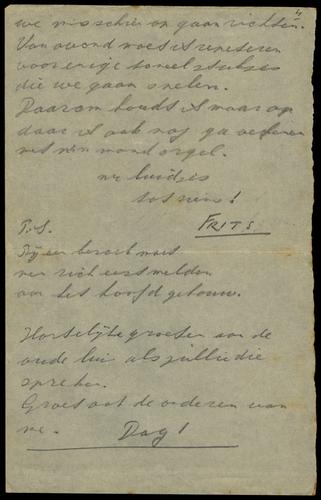 4
we misschien op gaan richten.
Van avond moet ik repeteren
voor enige toneel stukjes
die we gaan spelen.
Daarom houdt ik maar op
daar ik ook nog ga oefenen
met m'n mond orgel.
nu luidjes
tot ziens!
FRITS
P.S.
Bij een bezoek moet
men zich eerst melden
aan het hoofd gebouw.
Hartelijke groeten aan de
oude lui als jullie die
spreken.
Groet ook de anderen van
me. Dag!